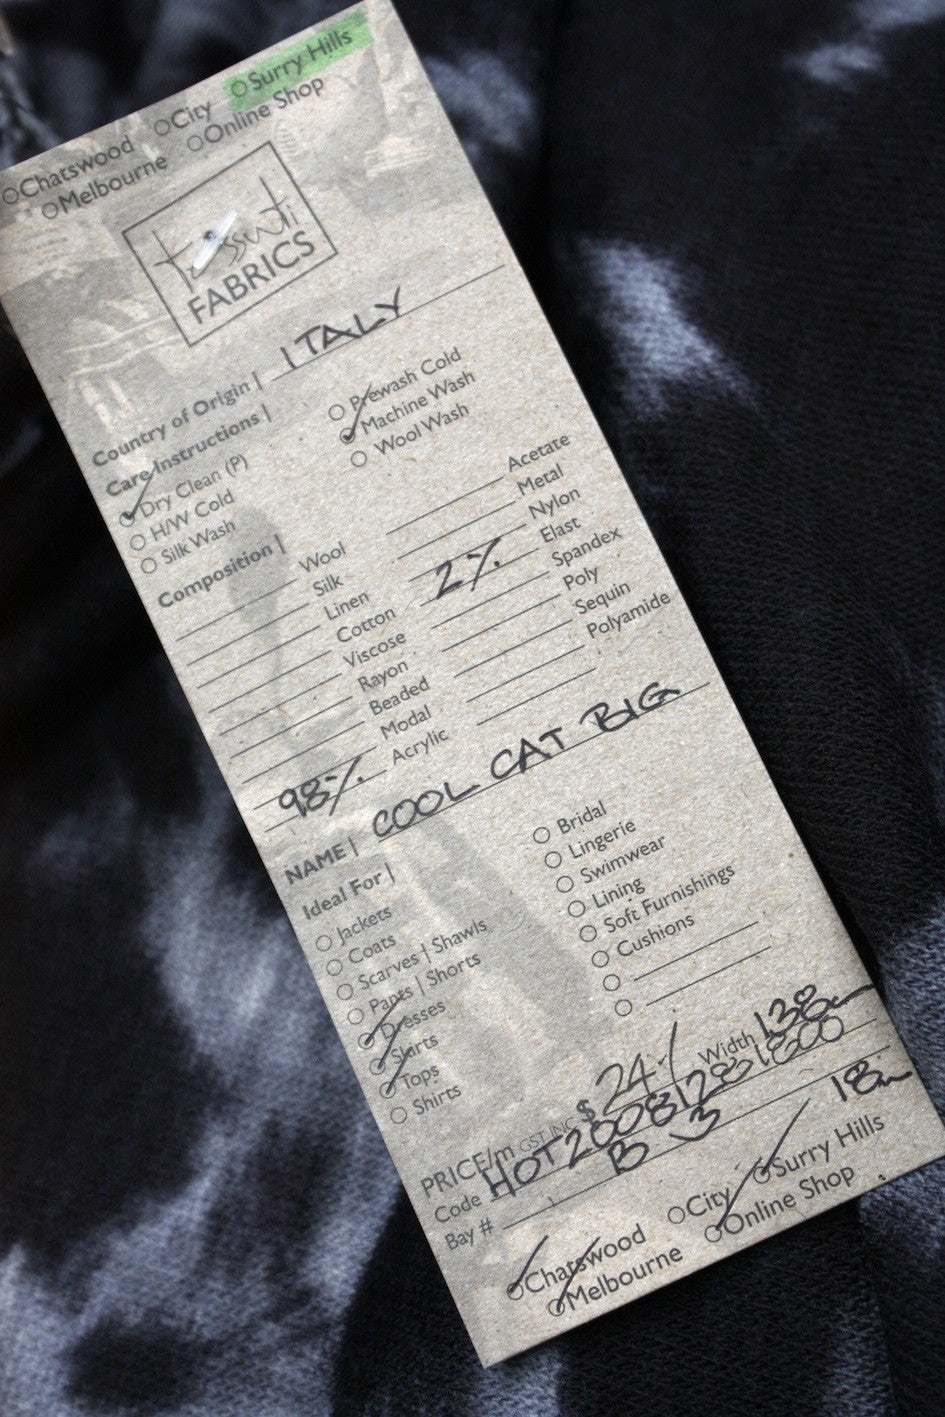 ○Chatswood ○City ○Surry Hills
○Melbourne ○Online Shop
tessuti
FABRICS
Country of Origin | ITALY
Care Instructions |
Dry Clean (P)
H/W Cold
Silk Wash
Prewash Cold
Machine Wash
Wool Wash
Composition |
Wool
Silk
Linen
Cotton
Viscose
Rayon
Beaded
Modal
98% Acrylic
Acetate
Metal
Nylon
2% Elast
Spandex
Poly
Sequin
Polyamide
NAME | COOL CAT BIG
Ideal For |
Jackets
Coats
Scarves | Shawls
Pants | Shorts
Dresses
Skirts
Tops
Shirts
Bridal
Lingerie
Swimwear
Lining
Soft Furnishings
Cushions
PRICE/m GST INC $ 24/ Width 138cm
Code HOT20081281800
Bay # B 3 18m
Chatswood City Surry Hills
Melbourne Online Shop